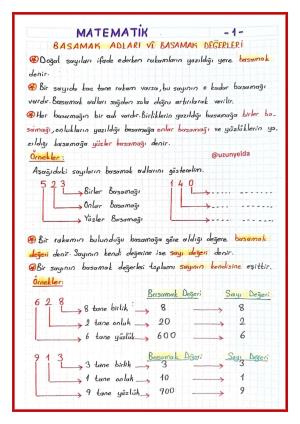 MATEMATİK -1-
BASAMAK ADLARI VE BASAMAK DEĞERLERİ
Doğal sayıları ifade ederken rakamların yazıldığı yere basamak
denir.
Bir sayıda kaç tane rakam varsa, bu sayının o kadar basamağı
vardır. Basamakları sağdan sola doğru artırılarak verilir.
Her basamağın bir adı vardır. Birliklerin yazıldığı basamağa birler ba-
samağı, onlukların yazıldığı basamağa onlar basamağı ve yüzlüklerin ya-
zıldığı basamağa yüzler basamağı denir.
Örnekler:
@uzunyelda
Aşağıdaki sayıların basamak adlarını gösterelim.
5 2 3 1 4 0
Birler Basamağı
Onlar Basamağı
Yüzler Basamağı
Bir rakamın bulunduğu basamağa göre aldığı değere basamak
değeri denir. Sayının kendi değerine ise sayı değeri denir.
Bir sayının basamak değerleri toplamı sayının kendisine eşittir.
Örnekler:
6 2 8 Basamak Değeri Sayı Değeri
8 tane birlik 8 8
2 tane onluk 20 2
6 tane yüzlük 600 6
9 1 3 Basamak Değeri Sayı Değeri
3 tane birlik 3 3
1 tane onluk 10 1
9 tane yüzlük 900 9